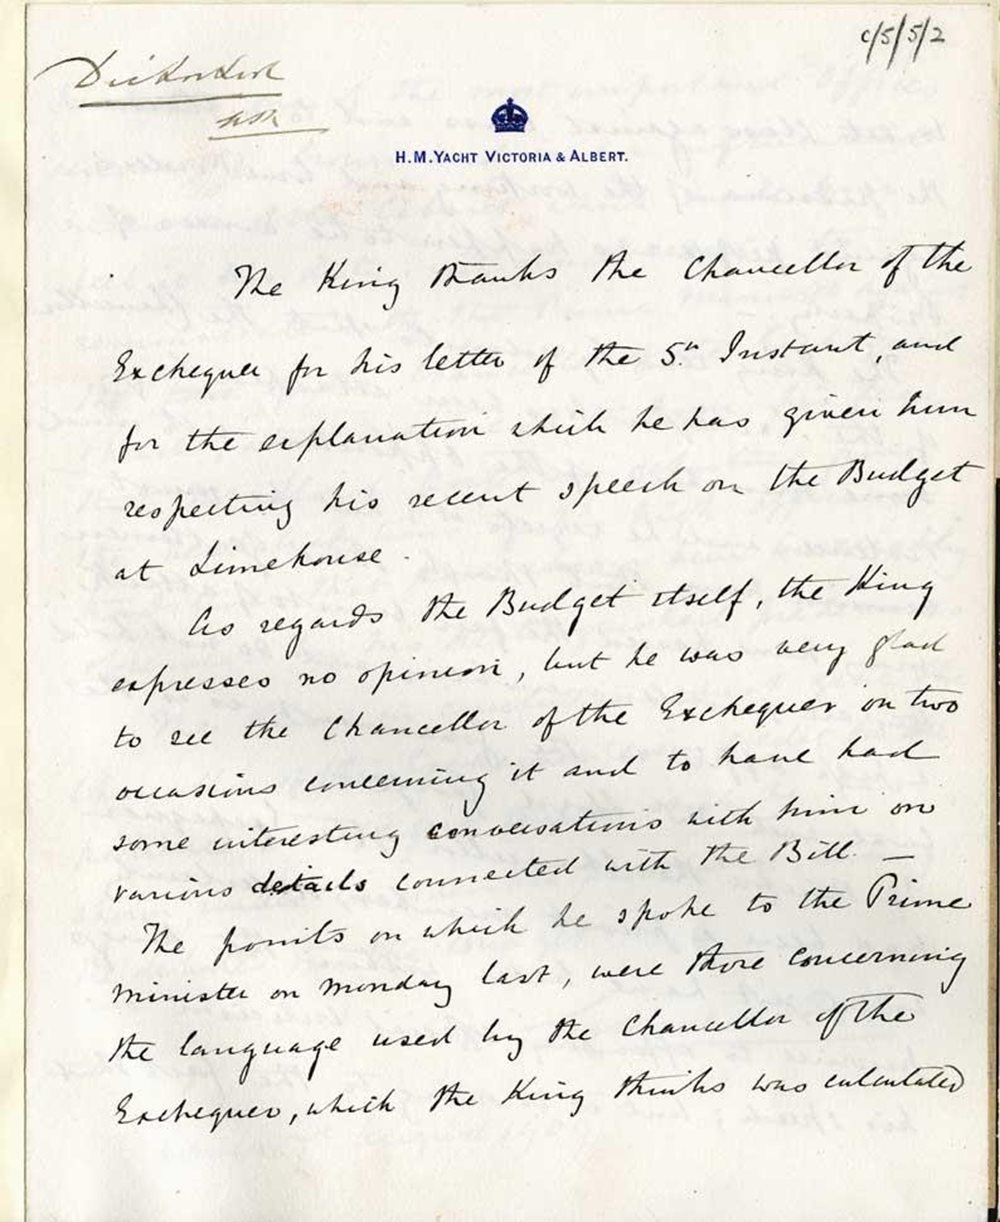 c/5/5/2
H.M. YACHT VICTORIA & ALBERT.
The King thanks the Chancellor of the
Exchequer for his letter of the 5th Instant, and
for the explanation which he has given him
respecting his recent speech on the Budget
at Limehouse.
As regards the Budget itself, the King
expresses no opinion, but he was very glad
to see the Chancellor of the Exchequer on two
occasions concerning it and to have had
some interesting conversations with him on
various details connected with the Bill. —
The points on which he spoke to the Prime
Minister on Monday last, were those concerning
the language used by the Chancellor of the
Exchequer, which the King thinks was calculated